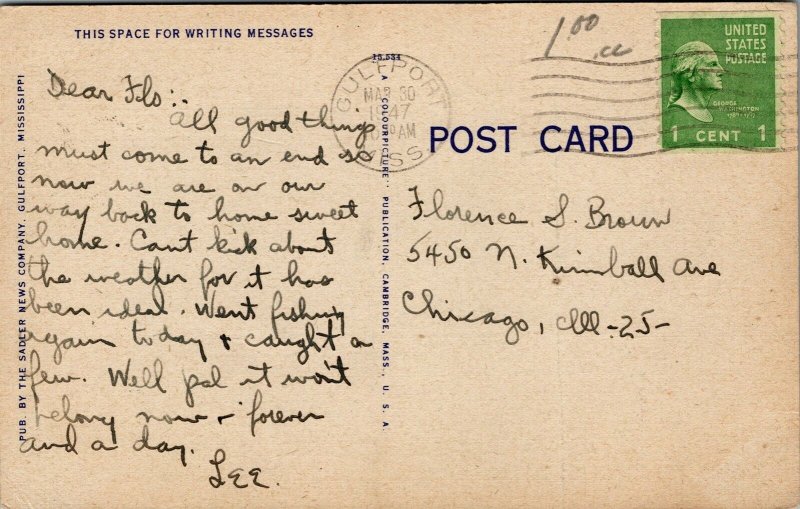 THIS SPACE FOR WRITING MESSAGES
Dear Flo:.
All good things
must come to an end so
now we are on our
way back to home sweet
home. Cant kick about
the weather for it has
been ideal. Went fishing
again today & caught a
few. Well pal it won't
be long now - forever
and a day.
LEE.
PUB. BY THE SADLER NEWS COMPANY, GULFPORT, MISSISSIPPI
15,534
A "COLOURPICTURE" PUBLICATION, CAMBRIDGE, MASS., U. S. A.
GULFPORT
MAR 30
1947
AM
MISS
1.00
cc
UNITED
STATES
POSTAGE
GEORGE
WASHINGTON
1 CENT 1
POST CARD
Florence S. Brown
5450 N. Kimball Ave
Chicago, Ill -25-